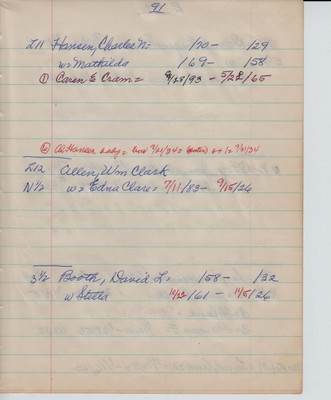 91
L11 Hansen, Charles N = 170 - 129
w = Mathilda 169 - 158
① Caren E Cram = 9/28/93 - 5/28/65
Al Hansen baby = 7/21/34 = 7/21/34
L12 Allen, Wm Clark
N½ w = Edna Clare = 7/11/83 - 9/15/26
S½ Booth, David L = 158 - 132
w Stella 11/22/61 - 11/5/26